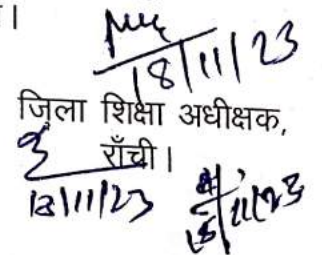 ।
18/11/23
जिला शिक्षा अधीक्षक,
राँची।
18/11/23
18/11/23